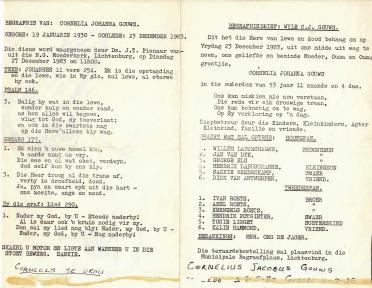 BEGRAFNIS VAN: CORNELIA JOHANNA GOUWS.
GEBORE: 19 JANUARIE 1930 - OORLEDE: 23 DESEMBER 1983.
Die diens word waargeneem deur Ds. J.T. Pienaar van-
uit die N.G. Moederkerk, Lichtenburg, op Dinsdag
27 Desember 1983 om 11H00.
TEKS: JOHANNES 11 vers 25a. Ek is die opstanding
en die lewe, wie in My glo, sal lewe, al sterwe
hy ook.
PSALM 146.
3. Salig hy wat in die lewe,
sonder hulp en sonder raad,
as hom alles wil begewe,
vlug tot God, sy toeverlaat;
en ook in die swartste nag
op die Heer alleen bly wag.
GESANG 171.
3. Die Heer droog al die trane af,
verby is droefheid, dood.
Ja, pyn en smart wyk uit die hart -
ons moeite, angs en nood.
By die graft Lied 290.
1. Nader my God, by U - Steeds naderby!
Al is daar ook 'n kruis nodig vir my.
Dan sal my lied nog bly: Nader, my God, by U
Nader, my God, by U - Nog naderby!
SKAKEL U MOTOR SE LIGTE AAN WANNEER U IN DIE
STOET BEWEEG. DANKIE.
CORNEELS SE VROU
BEGRAFNISBRIEF: WYLE C.J. GOUWS.
Dit het die Here van lewe en dood behaag om op
Vrydag 23 Desember 1983, uit ons midde uit weg te
neem, ons geliefde en beminde Moeder, Ouma en Ouma
grootjie,
CORNELIA JOHANNA GOUWS
in die ouderdom van 53 jaar 11 maande en 4 dae.
Gun kan miskien nie nou verstaan,
Die reds vir elk droewige traan,
Gun kan berustig oo te wag,
Op Sy verklaring op 'n dag.
Diepbetreur deur die Kinders, Kleinkinders, Agter
Kleinkind, familie en vriende.
DRAERS WAT SAL OPTREE: HOOFSPAN.
1. WILLEM LABUSCHAGNE,
2. JAN VAN DYK,
3. GEORGE ELS
4. HENDRIK LABUSCHAGNE, KLEINSEUN
5. SAKKIE BREDENKAMP, SWAER
6. DIRK VAN ANTWERPEN, VRIEND.
TWEEDESPAN.
1. IVAN HORTS, BROER
2. ABEL HORTS, "
4. HENDRIK POTGIETER, SWAER
5. TOBIE LIGGET SUSTERSKIND
6. KALIE HAMMOND, VRIEND.
BEDANKINGS: MNR. ORG DE JAGER.
Die teraardebestelling sal plaasvind in die
Munisipale Begraafplaas, Lichtenburg.
CORNELIUS JACOBUS GOUWS